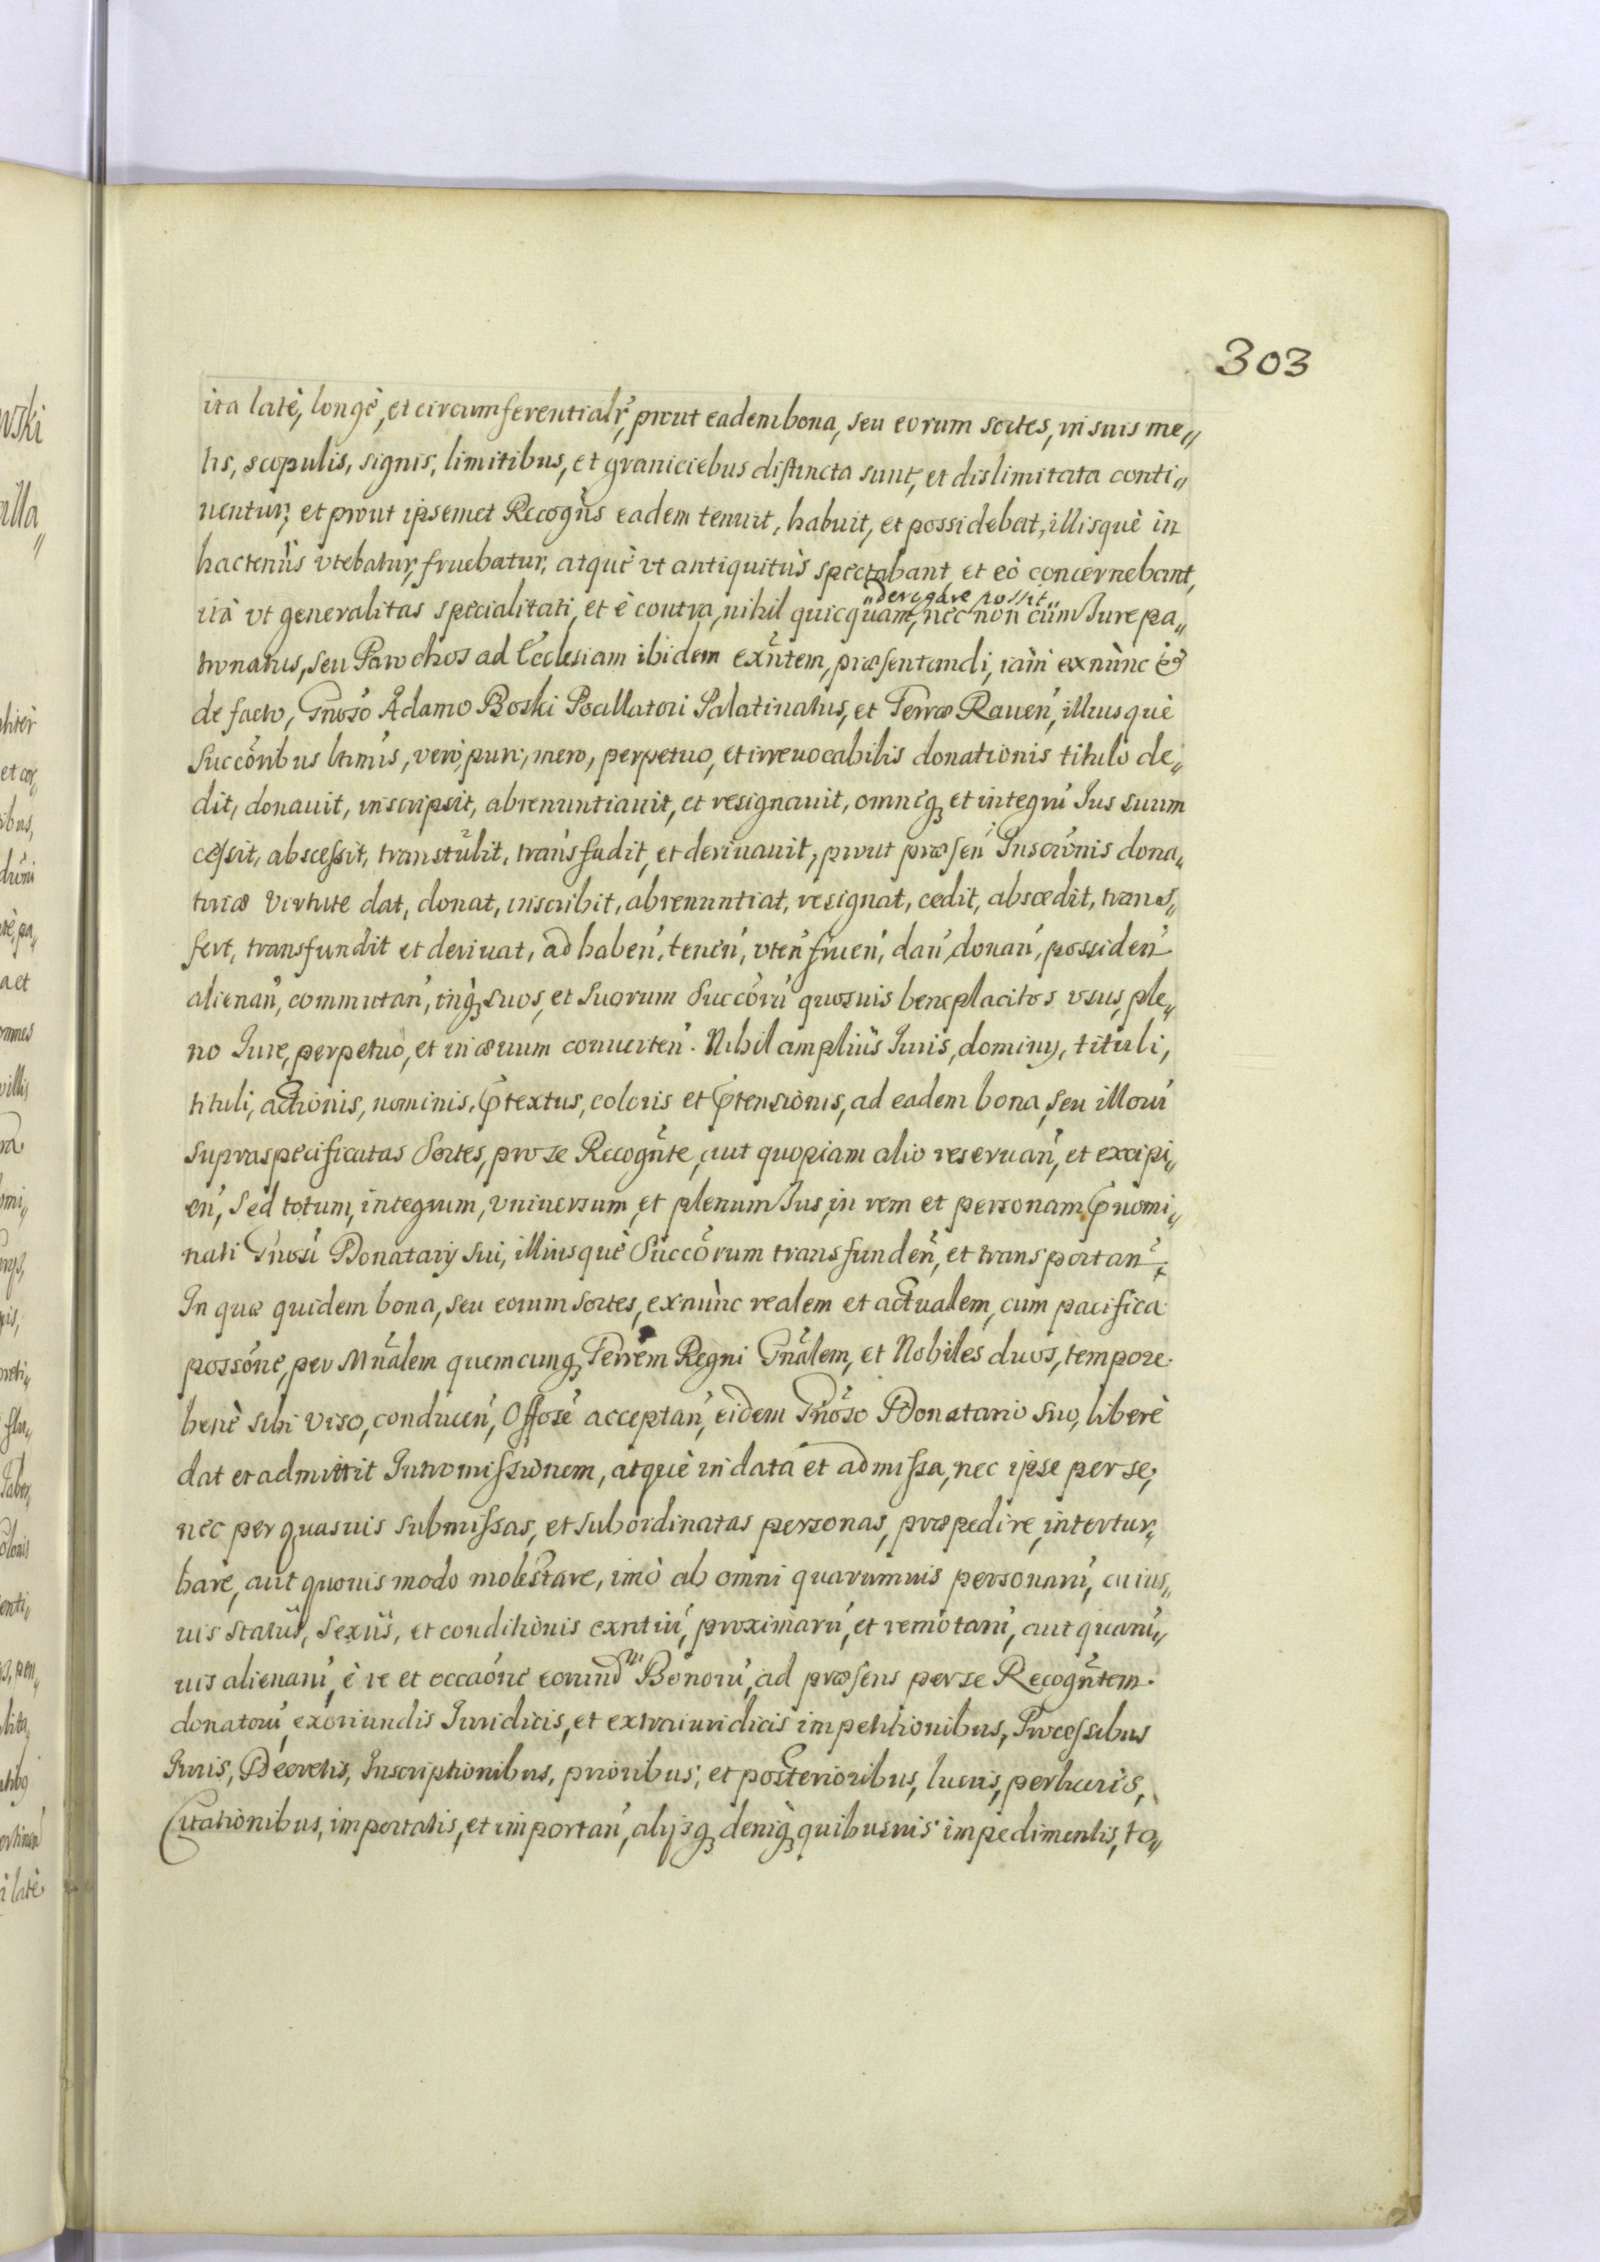 303
ita latè, longè, et circumferentialr̃, prout eadem bona, seu eorum sortes, in suis me„
tis, scopulis, signis, limitibus, et graniciebus distincta sunt, et dislimitata conti„
nentur, et prout ipsemet Recogñs eadem tenuit, habuit, et possidebat, illisquè in
hactenùs vtebatur, fruebatur, atquè vt antiquitùs spectabant, et eò concernebant,
„derogare possit„
ità vt generalitas specialitati, et è contra, nihil quicquam, nec non cum Jure pa„
tronatus, seu Parochos ad Ecclesiam ibidem exñtem, præsentandi, iàm exnùnc &
de facto, Gñoso Adamo Boski Pocillatori Palatinatus, et Terræ Raueń, illiusquè
Succõribus ltimis, vero, puro, mero, perpetuo, et irreuocabilis donationis titulo de„
dit, donauit, inscripsit, abrenuntiauit, et resignauit, omneq; et integrũ Jus suum
cessit, abscessit, transtulit, transfudit, et deriuauit, prout præseń Inscrõnis dona„
toriæ virtute dat, donat, inscribit, abrenuntiat, resignat, cedit, abscedit, trans„
fert, transfundit et deriuat, ad habeń, teneń, vteń frueń, dań, donań, possideń
alienań, commutań, inq; suos, et suorum Succõrũ quosuis beneplacitos vsus, ple„
no Jure, perpetuò, et in æuum conuerteń. Nihil ampliùs Juris, dominij, tituli,
tituli, actionis, nominis, p̃textus, coloris et p̃tensionis, ad eadem bona, seu illorũ
supraspecificatas Sortes, pro se Recogñte, aut quopiam alio reseruań, et excipi„
eń, Sed totum, integrum, vniuersum, et plenum Jus, in rem et personam p̃nomi„
nati Gñosi Donatarij sui, illiusquè Succõrum transfundeñ, et transportañ.
In quæ quidem bona, seu eorum sortes, exnùnc realem et actualem, cum pacifica
possõne, per Mñalem quemcunq; Terrẽm Regni Gñalem, et Nobiles duos, tempore
benè sibi viso, conduceń, Offosè acceptań, eidem Gñoso Donatario suo, liberè
dat et admittit Intromissionem, atquè in data et admissa, nec ipse per se,
nec per quasuis submissas, et subordinatas personas, præpedire, intertur„
bare, aut quouis modo molestare, imò ab omni quarumuis personarũ, cuius„
uis statùs, sexùs, et conditionis exntiũ, proximarũ, et remotarũ, aut quarũ„
uis alienarũ, è re et occaõne eorundm Bonorũ, ad præsens per se Recogñtem
donatorũ, exoriundis Juridicis, et extraiuridicis impetitionibus, Processibus
Juris, Decretis, Inscriptionibus, prioribus, et posterioribus, lucris, perlucris,
Citationibus, importatis, et importań, alijsq; deniq; quibusuis impedimentis, to„